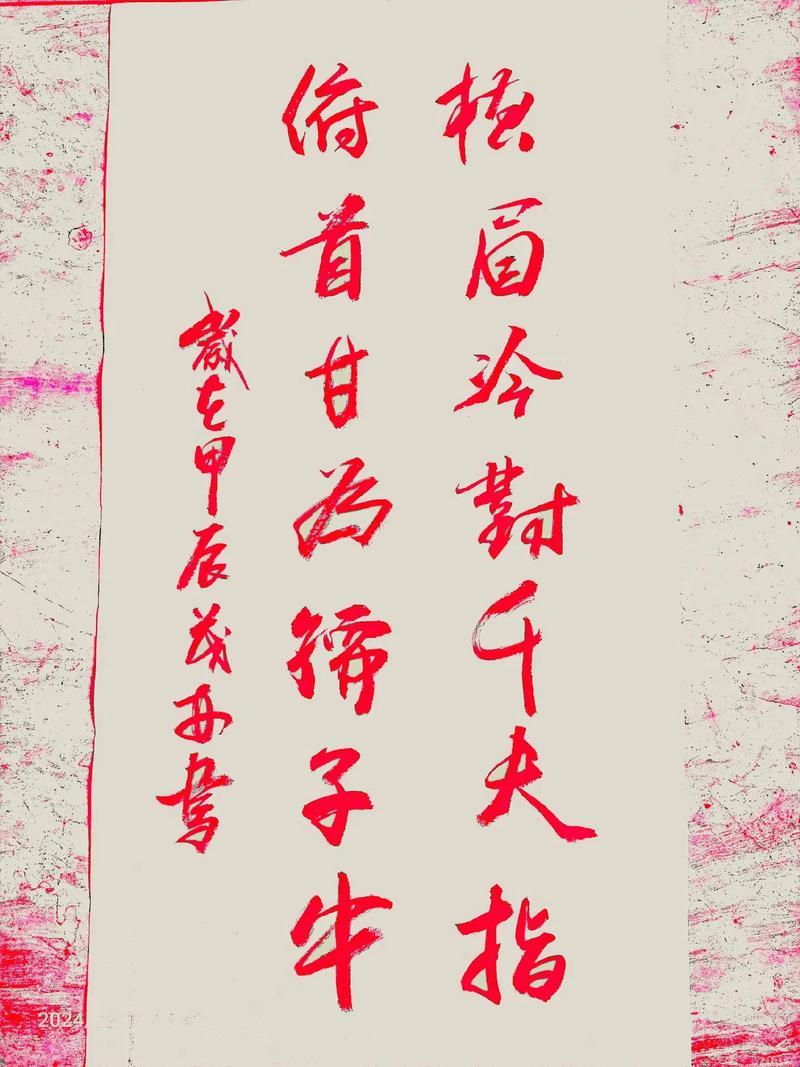 横眉冷對千夫指
俯首甘为孺子牛
歲在甲辰茂書
2024